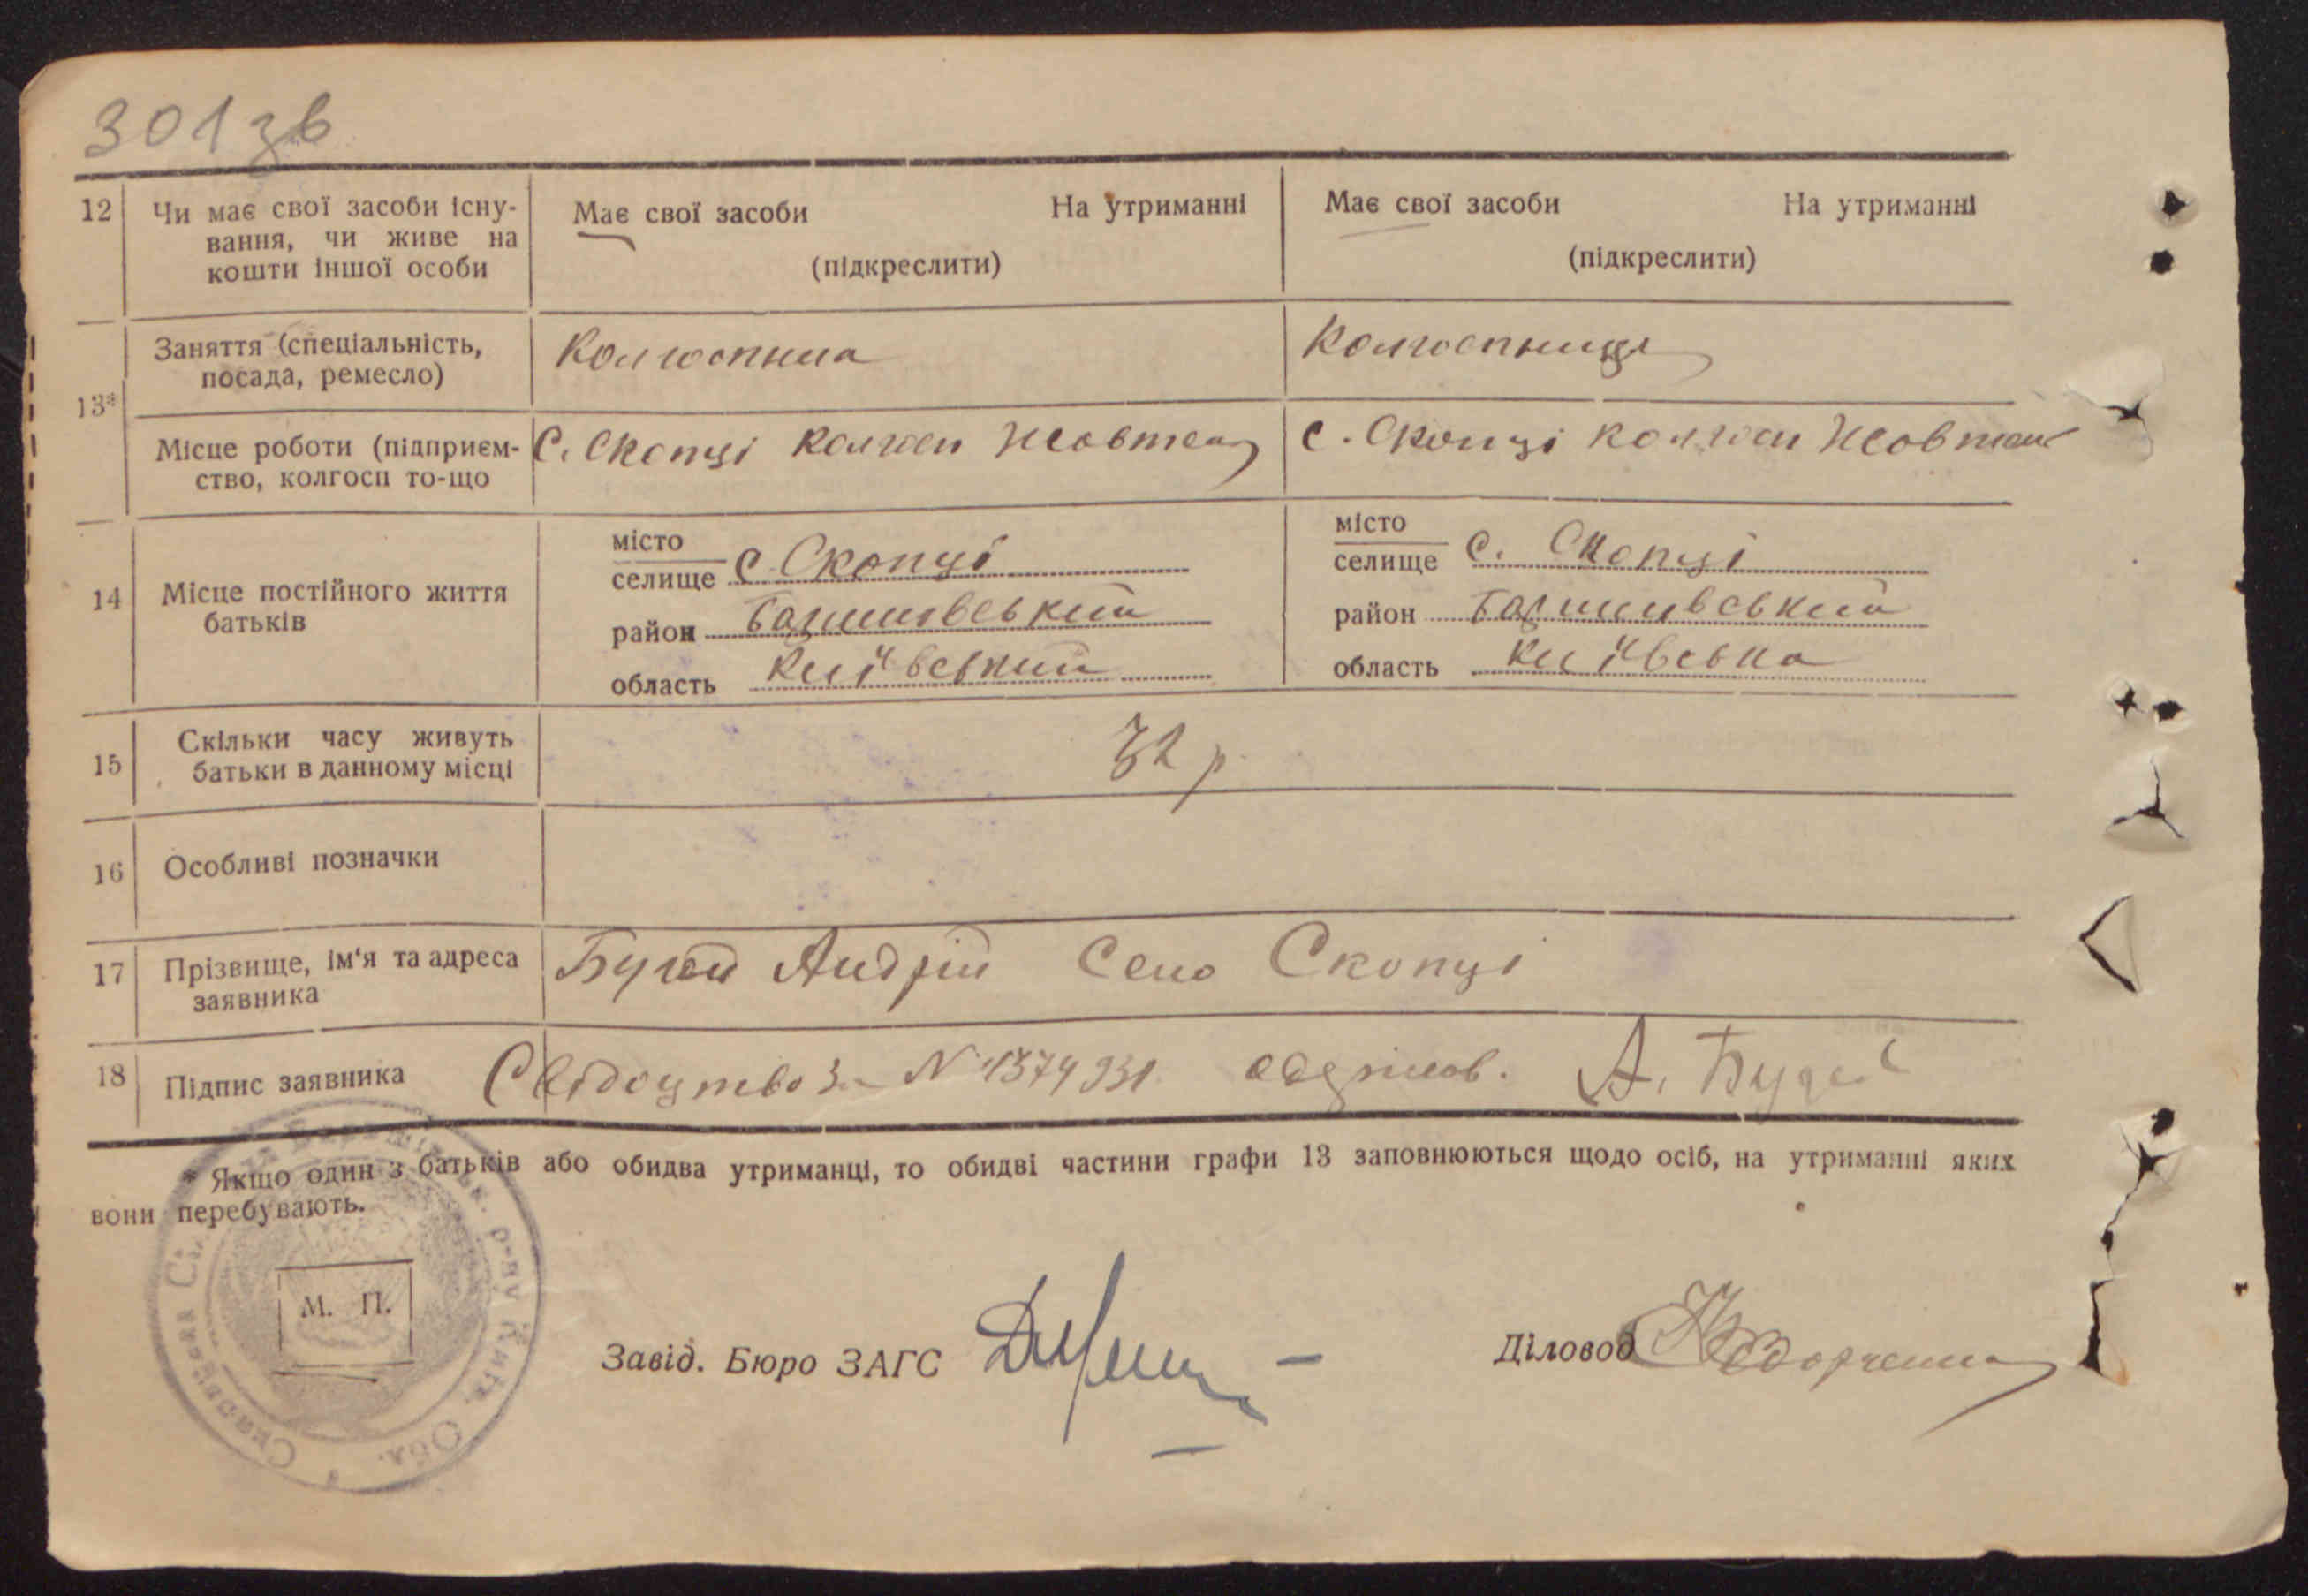 301 зв
12 Чи має свої засоби існу-
вання, чи живе на
кошти іншої особи
Має свої засоби На утриманні
(підкреслити)
Має свої засоби На утриманні
(підкреслити)
13*
Заняття (спеціальність,
посада, ремесло)
Колгоспник
Колгоспниця
Місце роботи (підприєм-
ство, колгосп то-що
С. Скопці колгосп Жовтень
с. Скопці колгосп Жовтень
14 Місце постійного життя
батьків
місто
селище с Скопці
район
область Київський
місто
селище с. Скопці
район
область Київська
15 Скільки часу живуть
батьки в данному місці
32 р
16 Особливі позначки
17 Прізвище, ім'я та адреса
заявника
Андрій Село Скопці
18 Підпис заявника
Свідоцтво За № 1374931 одержав. А.
* Якщо один з батьків або обидва утриманці, то обидві частини графи 13 заповнюються щодо осіб, на утриманні яких
вони перебувають.
М. П.
Завід. Бюро ЗАГС
Діловод